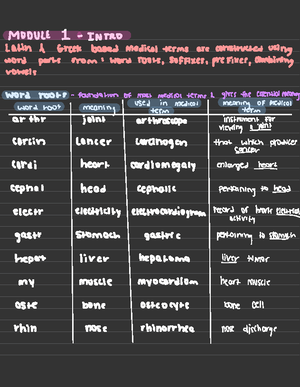 MODULE 1 - INTRO
Latin & Greek based medical terms are constructed using
word parts from: word roots, suffixes, prefixes, combining
vowels
word roots - foundation of most medical terms & gives the essential meaning
word root meaning used in medical term meaning of medical term
arthr joint arthroscope instrument for viewing a joint
carcin cancer carcinogen that which produces cancer
cardi heart cardiomegaly enlarged heart
cephal head cephalic pertaining to head
electr electricity electrocardiogram record of heart's electrical activity
gastr stomach gastric pertaining to stomach
hepat liver hepatoma liver tumor
my muscle myocardium heart muscle
oste bone osteocyte bone cell
rhin nose rhinorrhea nose discharge